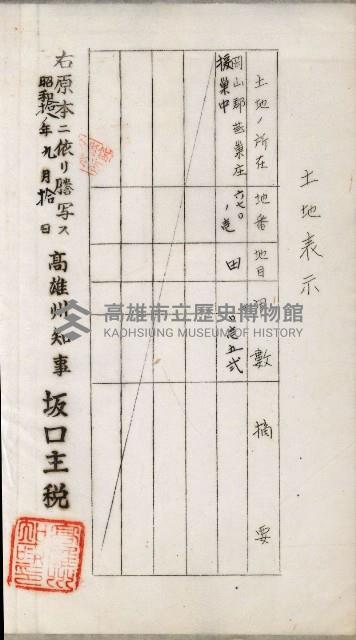 土地表示
土地ノ所在 地番 地目 甲數 摘要
岡山郡燕巢庄 六七〇ノ壱 田 〇壱五弐
援巢中
右原本ニ依リ謄写ス
昭和拾八年九月拾日
高雄州知事 坂口主税
高雄市立歷史博物館
KAOHSIUNG MUSEUM OF HISTORY